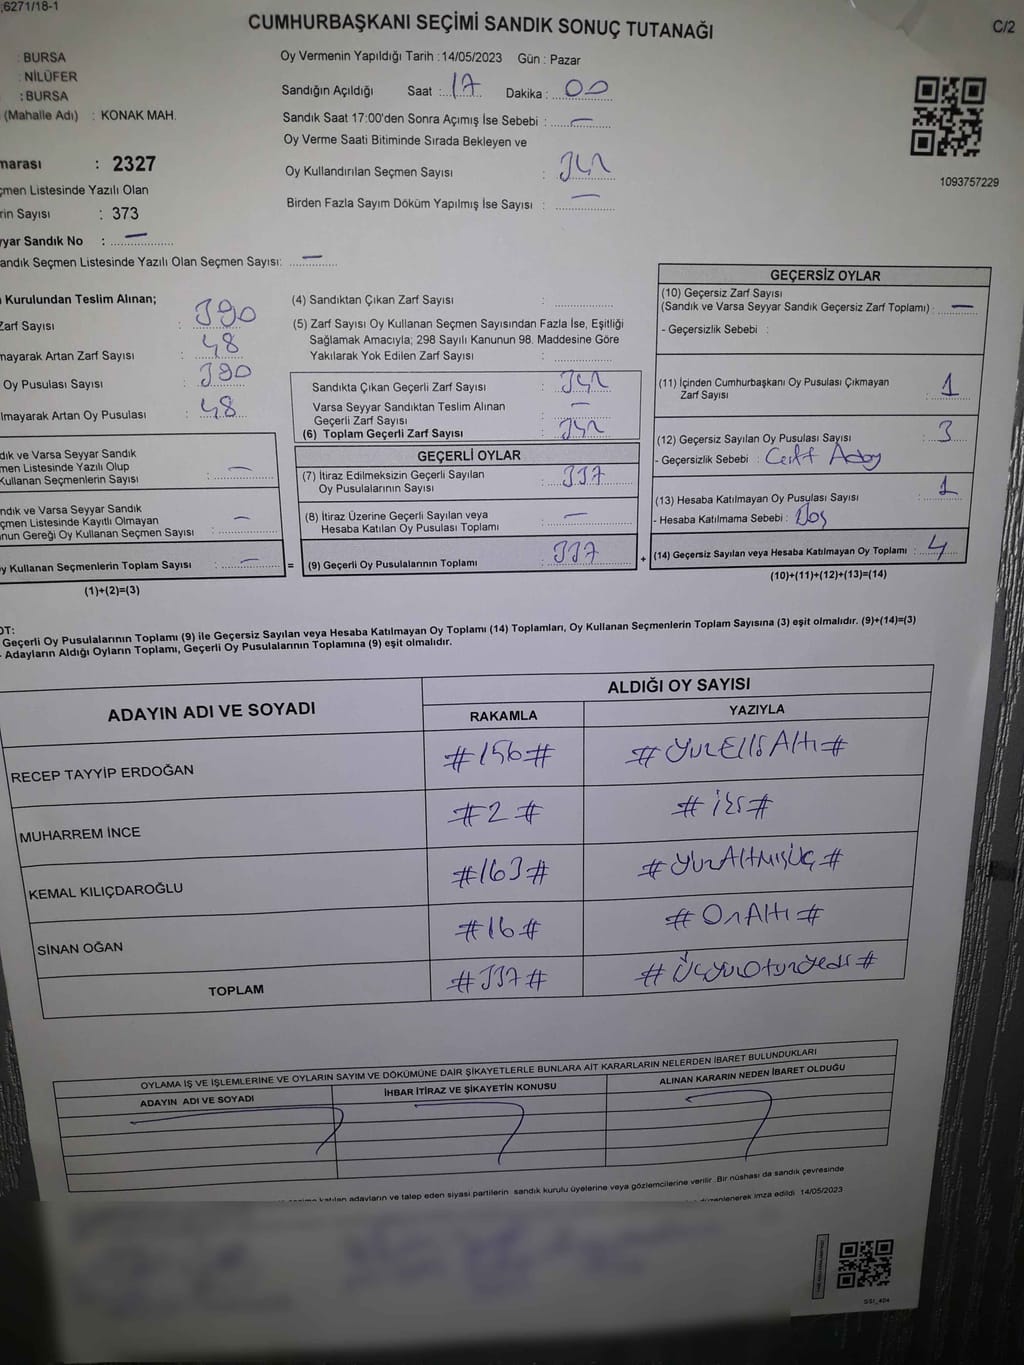 ;6271/18-1
CUMHURBAŞKANI SEÇİMİ SANDIK SONUÇ TUTANAĞI
C/2
: BURSA
: NİLÜFER
: BURSA
(Mahalle Adı) : KONAK MAH.
marası : 2327
çmen Listesinde Yazılı Olan
rin Sayısı : 373
yyar Sandık No : —
andık Seçmen Listesinde Yazılı Olan Seçmen Sayısı: —
Oy Vermenin Yapıldığı Tarih : 14/05/2023 Gün : Pazar
Sandığın Açıldığı Saat : 17 Dakika : 00
Sandık Saat 17:00'den Sonra Açımış İse Sebebi : —
Oy Verme Saati Bitiminde Sırada Bekleyen ve
Oy Kullandırılan Seçmen Sayısı : 342
Birden Fazla Sayım Döküm Yapılmış İse Sayısı : —
1093757229
Kurulundan Teslim Alınan;
Zarf Sayısı : 390
mayarak Artan Zarf Sayısı : 48
Oy Pusulası Sayısı : 390
lmayarak Artan Oy Pusulası : 48
dık ve Varsa Seyyar Sandık
men Listesinde Yazılı Olup
Kullanan Seçmenlerin Sayısı : —
ndık ve Varsa Seyyar Sandık
çmen Listesinde Kayıtlı Olmayan
nun Gereği Oy Kullanan Seçmen Sayısı : —
y Kullanan Seçmenlerin Toplam Sayısı : — =
(1)+(2)=(3)
(4) Sandıktan Çıkan Zarf Sayısı :
(5) Zarf Sayısı Oy Kullanan Seçmen Sayısından Fazla İse, Eşitliği
Sağlamak Amacıyla; 298 Sayılı Kanunun 98. Maddesine Göre
Yakılarak Yok Edilen Zarf Sayısı :
Sandıkta Çıkan Geçerli Zarf Sayısı : 342
Varsa Seyyar Sandıktan Teslim Alınan
Geçerli Zarf Sayısı : —
(6) Toplam Geçerli Zarf Sayısı : 342
GEÇERLİ OYLAR
(7) İtiraz Edilmeksizin Geçerli Sayılan
Oy Pusulalarının Sayısı : 337
(8) İtiraz Üzerine Geçerli Sayılan veya
Hesaba Katılan Oy Pusulası Toplamı : —
(9) Geçerli Oy Pusulalarının Toplamı : 337 +
GEÇERSİZ OYLAR
(10) Geçersiz Zarf Sayısı
(Sandık ve Varsa Seyyar Sandık Geçersiz Zarf Toplamı) : —
- Geçersizlik Sebebi :
(11) İçinden Cumhurbaşkanı Oy Pusulası Çıkmayan
Zarf Sayısı : 1
(12) Geçersiz Sayılan Oy Pusulası Sayısı : 3
- Geçersizlik Sebebi : Çift Aday
(13) Hesaba Katılmayan Oy Pusulası Sayısı : 1
- Hesaba Katılmama Sebebi : Boş
(14) Geçersiz Sayılan veya Hesaba Katılmayan Oy Toplamı : 4
(10)+(11)+(12)+(13)=(14)
OT:
Geçerli Oy Pusulalarının Toplamı (9) ile Geçersiz Sayılan veya Hesaba Katılmayan Oy Toplamı (14) Toplamları, Oy Kullanan Seçmenlerin Toplam Sayısına (3) eşit olmalıdır. (9)+(14)=(3)
- Adayların Aldığı Oyların Toplamı, Geçerli Oy Pusulalarının Toplamına (9) eşit olmalıdır.
ADAYIN ADI VE SOYADI
ALDIĞI OY SAYISI
RAKAMLA YAZIYLA
RECEP TAYYİP ERDOĞAN #156# #YüzElliAltı#
MUHARREM İNCE #2# #iki#
KEMAL KILIÇDAROĞLU #163# #YüzAltmışÜç#
SİNAN OĞAN #16# #OnAltı#
TOPLAM #337# #ÜçyüzOtuzYedi#
OYLAMA İŞ VE İŞLEMLERİNE VE OYLARIN SAYIM VE DÖKÜMÜNE DAİR ŞİKAYETLERLE BUNLARA AİT KARARLARIN NELERDEN İBARET BULUNDUKLARI
ADAYIN ADI VE SOYADI İHBAR İTİRAZ VE ŞİKAYETİN KONUSU ALINAN KARARIN NEDEN İBARET OLDUĞU
katılan adayların ve talep eden siyasi partilerin sandık kurulu üyelerine veya gözlemcilerine verilir. Bir nüshası da sandık çevresinde
düzenlenerek imza edildi. 14/05/2023
SSI_404